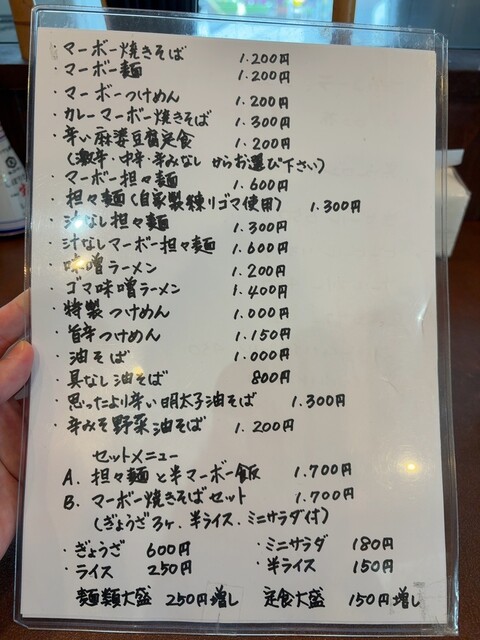 ・マーボー焼きそば 1.200円
・マーボー麺 1.200円
・マーボーつけめん 1.200円
・カレーマーボー焼きそば 1.300円
・辛い麻婆豆腐定食 1.200円
(激辛・中辛・辛みなし からお選び下さい)
・マーボー担々麺 1.600円
・担々麺(自家製練りゴマ使用) 1.300円
・汁なし担々麺 1.300円
・汁なしマーボー担々麺 1.600円
・味噌ラーメン 1.200円
・ゴマ味噌ラーメン 1.400円
・特製つけめん 1.000円
・旨辛つけめん 1.150円
・油そば 1.000円
・具なし油そば 800円
・思ったより辛い明太子油そば 1.300円
・辛みそ野菜油そば 1.200円
セットメニュー
A. 担々麺と半マーボー飯 1.700円
B. マーボー焼きそばセット 1.700円
(ぎょうざ3ヶ、半ライス、ミニサラダ付)
・ぎょうざ 600円 ・ミニサラダ 180円
・ライス 250円 ・半ライス 150円
麺類大盛 250円増し 定食大盛 150円増し